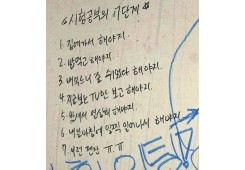 " 시험공부의 7단계 "
1. 집에가서 해야지.
2. 밥먹고 해야지.
3. 배부르니 좀 쉬었다 해야지.
4. 지금보는 TV만 보고 해야지.
5. 밤새서 열심히 해야지.
6. 내일아침에 일찍 일어나서 해야지.
7. ㅠ.ㅠ